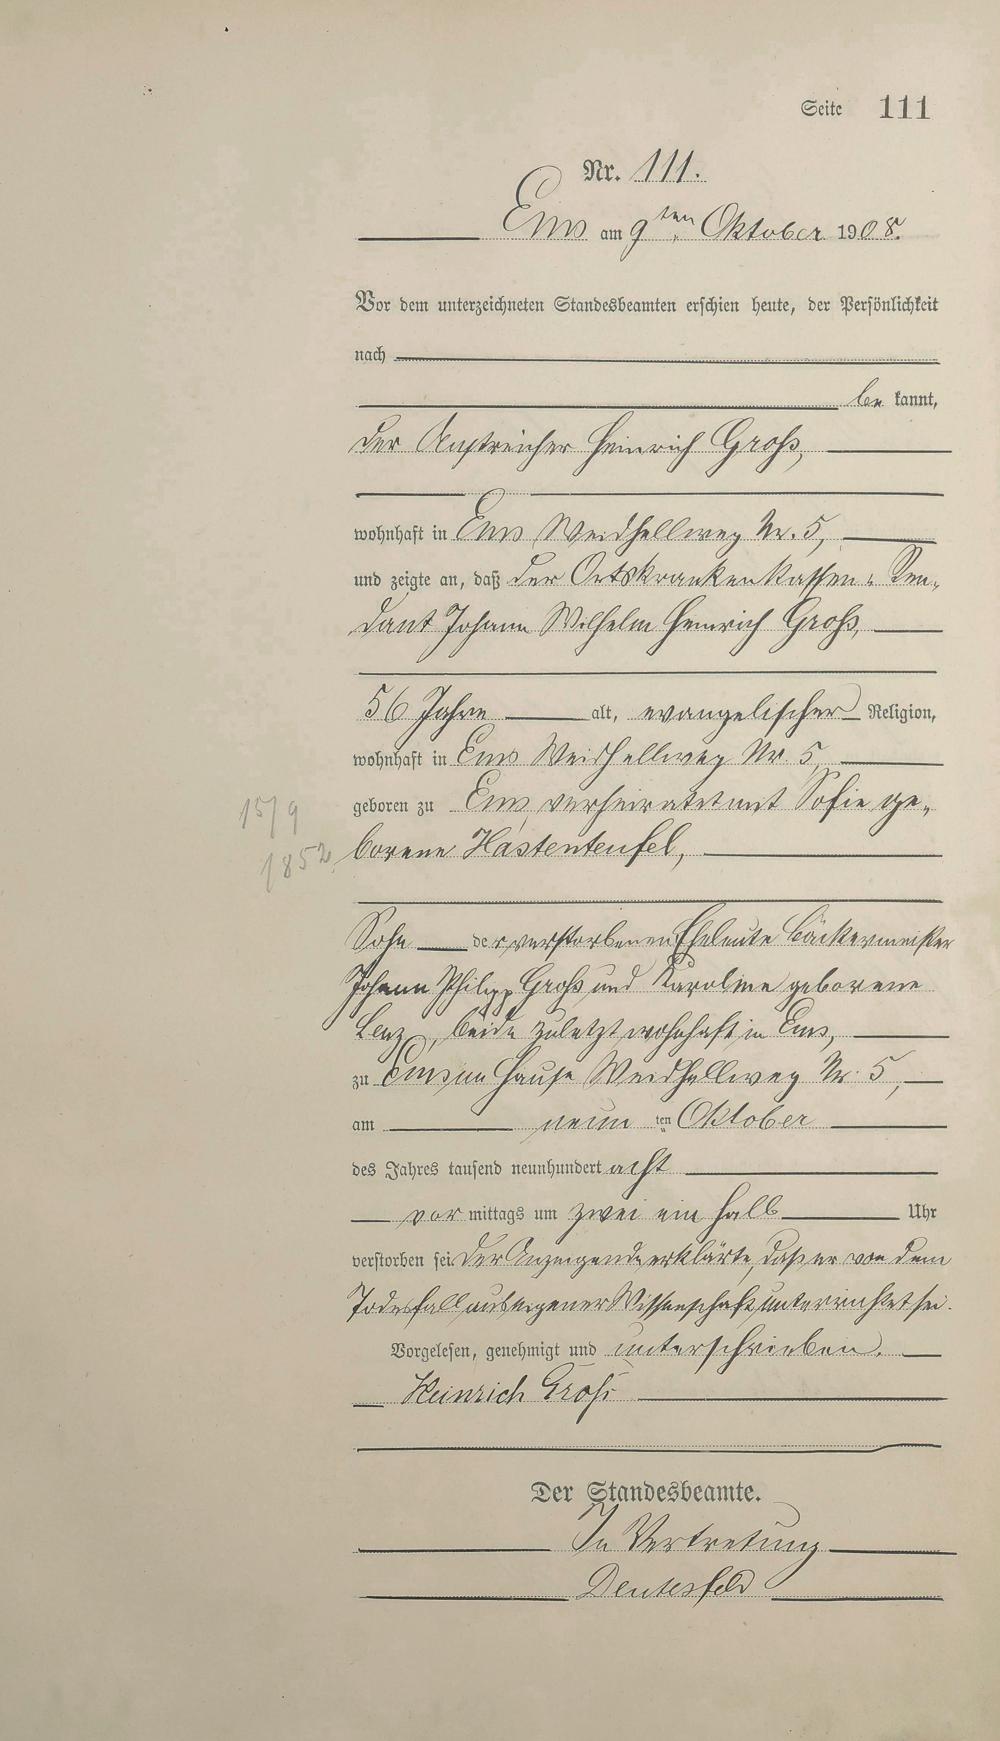 Seite 111
Nr. 111.
Ems am 9ten Oktober 1908.
Vor dem unterzeichneten Standesbeamten erschien heute, der Persönlichkeit
nach
be kannt,
der Anstreicher Heinrich Groß,
wohnhaft in Ems Weidhellweg Nr. 5,
und zeigte an, daß der Ortskrankenkassen-Ren-
dant Johann Wilhelm Heinrich Groß,
56 Jahre alt, evangelischer Religion,
wohnhaft in Ems Weidhellweg Nr. 5,
geboren zu Ems, verheiratet mit Sofie ge-
15/9
borene Hastenteufel,
1852
Sohn der verstorbenen Eheleute Bäckermeister
Johann Philipp Groß und Karoline geborene
Lenz, beide zuletzt wohnhaft in Ems,
zu Ems im Hause Weidhellweg Nr. 5,
am neun ten Oktober
des Jahres tausend neunhundert acht
vor mittags um zwei ein halb Uhr
verstorben sei. Der Anzeigende erklärte, daß er von dem
Todesfall aus eigener Wissenschaft unterrichtet sei.
Vorgelesen, genehmigt und unterschrieben.
Heinrich Groß
Der Standesbeamte.
In Vertretung
Deutesfeld